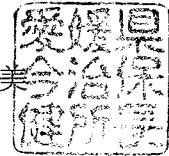 愛媛県
今治保
健所長
美